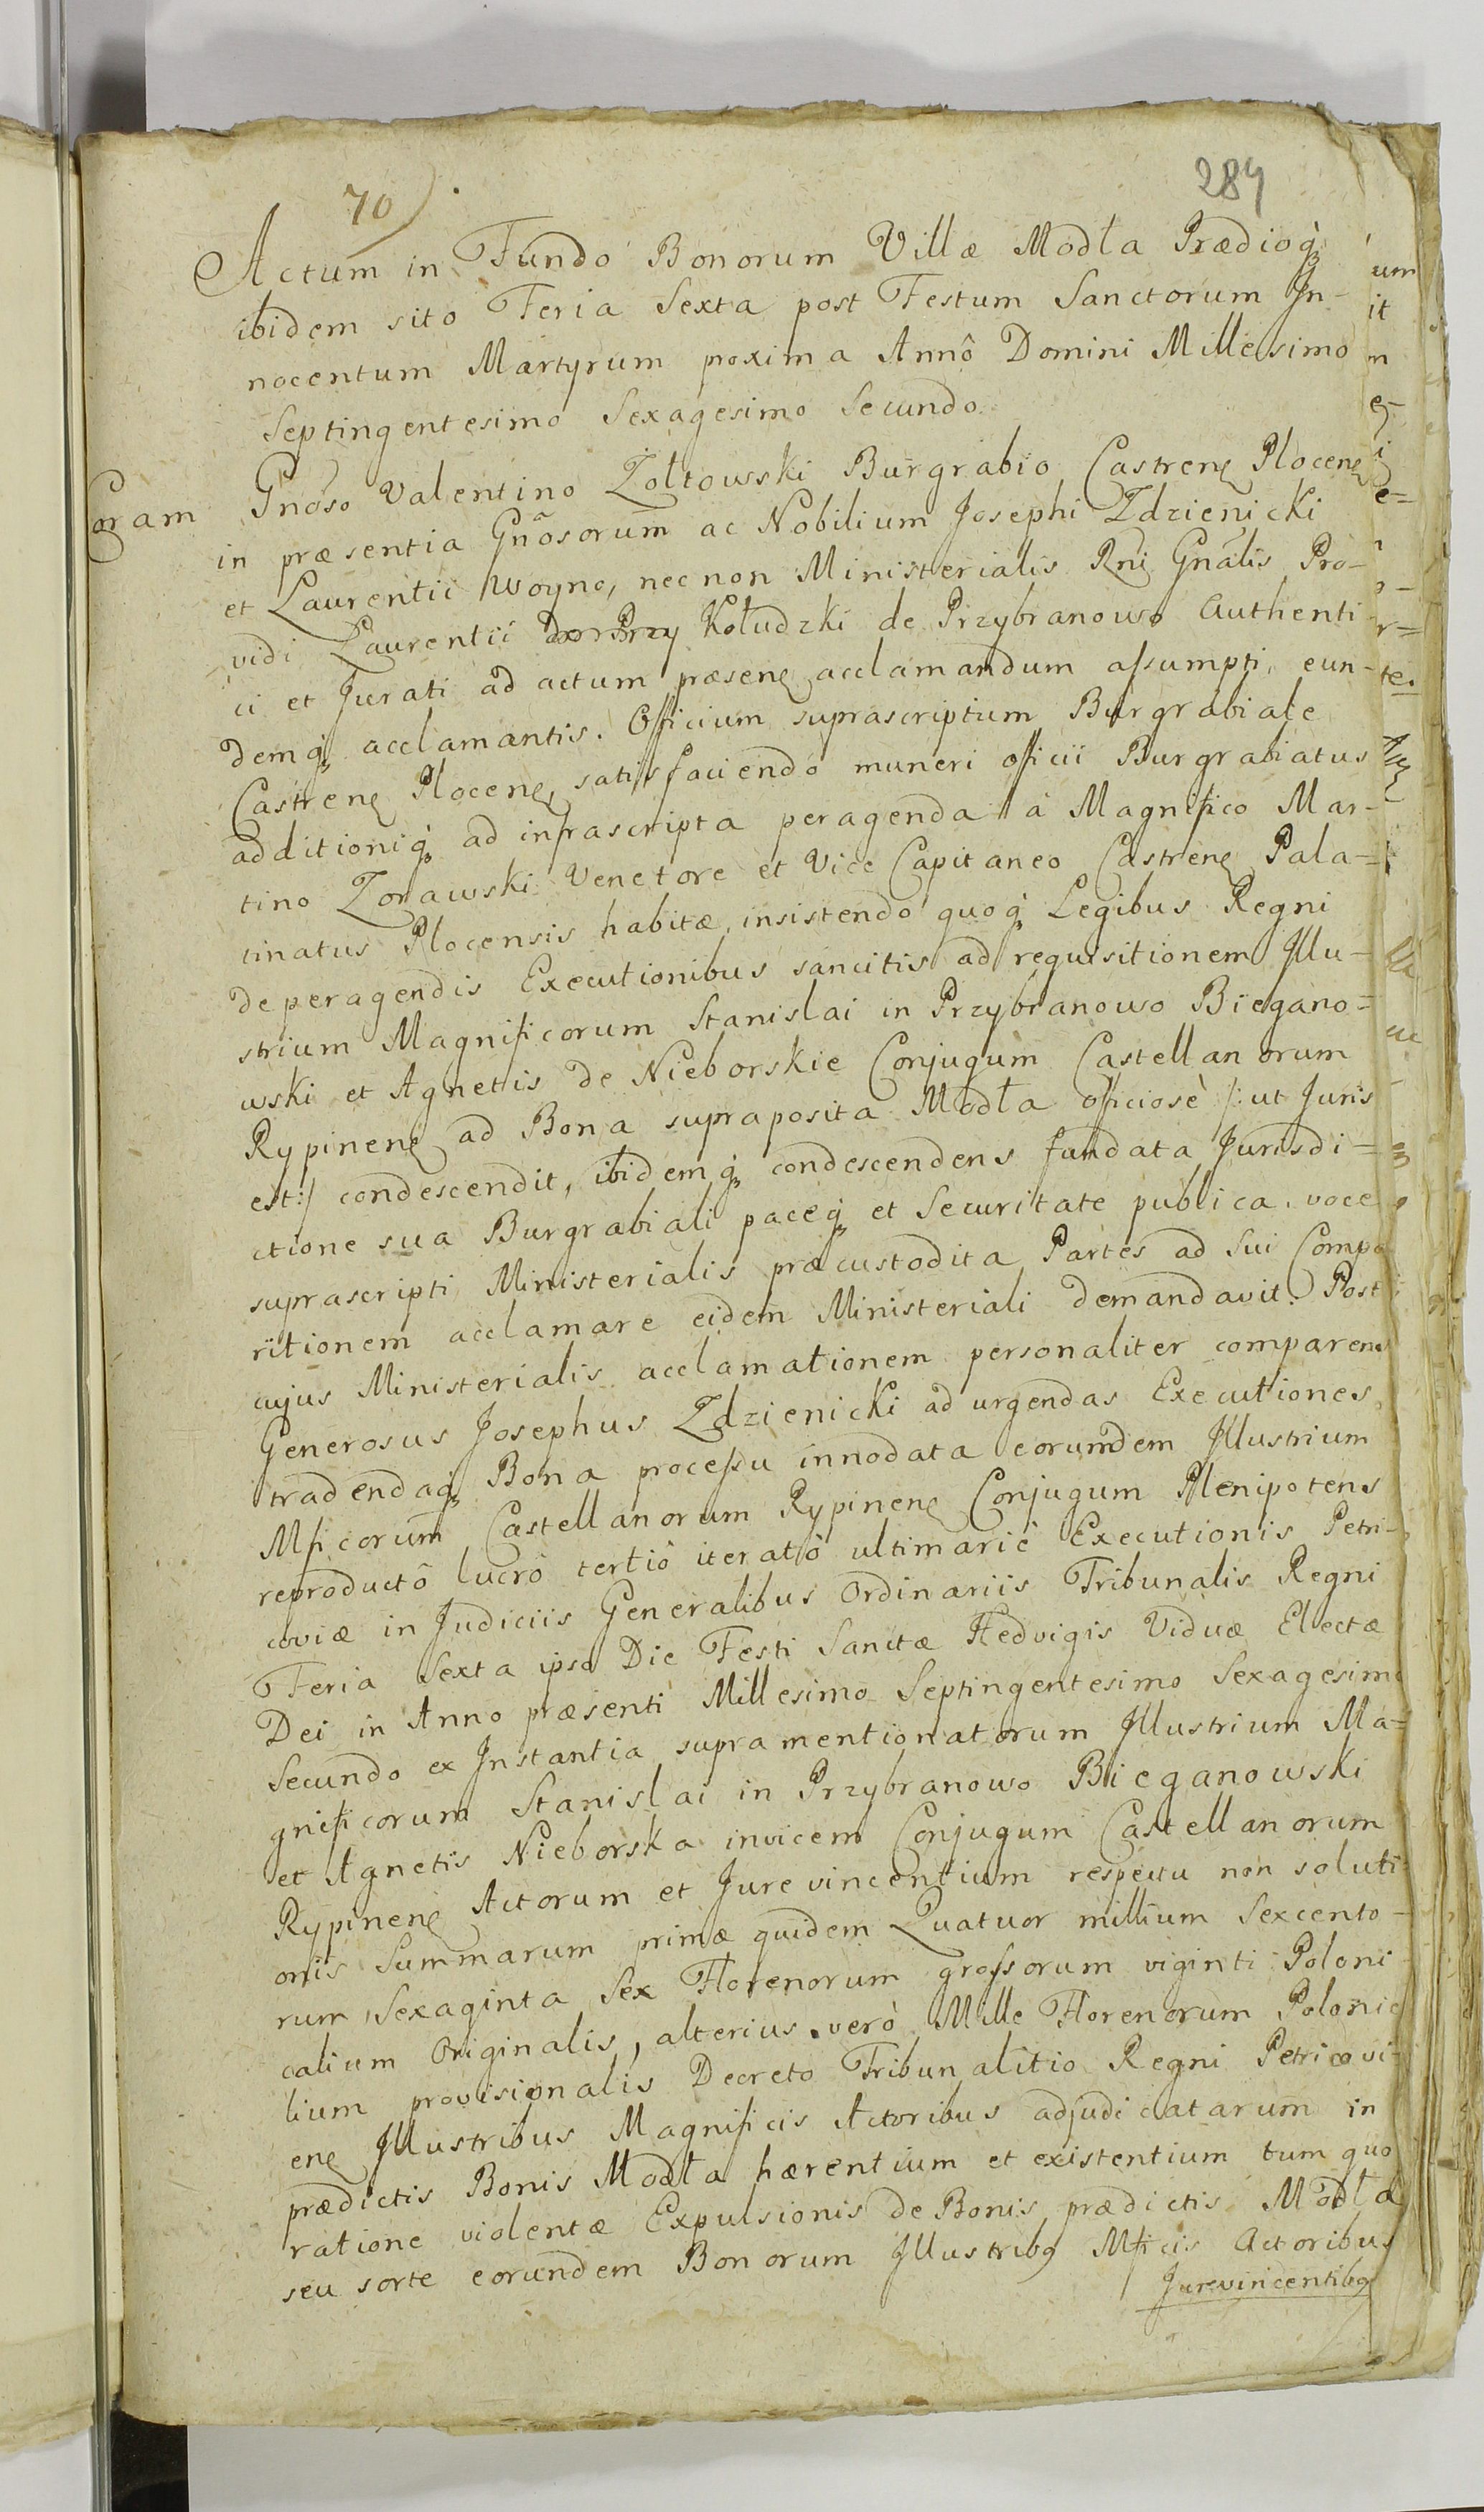 70)
284
Actum in Fundo Bonorum Villæ Modła Prædioq́
ibidem sito Feria Sexta post Festum Sanctorum In-
nocentum Martyrum poxima Annô Domini Millesimo
Septingentesimo Sexagesimo Secundo.
Coram Gnõso Valentino Zołtowski Burgrabio Castrenę Plocenę
in præsentia Gnõsorum ac Nobilium Josephi Zdzienicki
et Laurentii Woyno, nec non Ministerialis Rni Gnãlis Pro-
vidi Laurentii Kołudzki de Przybranowo Authenti
ci et Jurati ad actum præsenę acclamandum assumpti, eun-
demq́ acclamantis. Officium suprascriptum Burgrabiale
Castrenę Plocenę, satisfaciendo muneri officii Burgrabiatus
additioniq́ ad infrascripta peragenda à Magnifico Mar-
tino Zorawski Venetore et Vice Capitaneo Castrenę Pala-
tinatus Plocensis habitæ, insistendo quoq́ Legibus Regni
de peragendis Executionibus sancitis ad requisitionem Illu-
strium Magnificorum Stanislai in Przybranowo Biegano=
wski et Agnetis de Nieborskie Conjugum Castellanorum
Rypinenę ad Bona supraposita Modła officiosè /:ut Juris
est:/ condescendit, ibidemq́ condescendens fundata Jurisdi=
ctione sua Burgrabiali paceq́ et Securitate publica, voce
suprascripti Ministerialis præcustodita Partes ad sui Compa
ritionem acclamare eidem Ministeriali demandavit. Post
cujus Ministerialis acclamationem personaliter comparens
Generosus Josephus Zdzienicki ad urgendas Executiones,
tradendaq́ Bona processu innodata eorumdem Illustrium
Mficorum Castellanorum Rypinenę Conjugum Plenipotens
reproductô lucrô tertiô iteratô ultimariè Executionis Petri-
coviæ in Judiciis Generalibus Ordinariis Tribunalis Regni
Feria Sexta ipso Die Festi Sanctæ Hedvigis Viduæ Electæ
Dei in Anno præsenti Millesimo Septingentesimo Sexagesimo
Secundo ex Instantia supramentionatorum Illustrium Ma=
gnificorum Stanislai in Przybranowo Bieganowski
et Agnetis Nieborska invicem Conjugum Castellanorum
Rypinenę Actorum et Jurevincentium respectu non soluti
onis Summarum primæ quidem Quatuor millium Sexcento-
rum Sexaginta Sex Florenorum grossorum viginti Poloni
calium Originalis, alterius verò Mille Florenorum Polonica
lium provisionalis Decreto Tribunalitio Regni Petricovi-
enę Illustribus Magnificis Actoribus adjudicatarum in
prædictis Bonis Modła hærentium et existentium tum quo
ratione violentæ Expulsionis de Bonis prædictis Modła
seu sorte eorundem Bonorum Illustribꝯ Mficis Actoribus
Jurevincentibꝯ